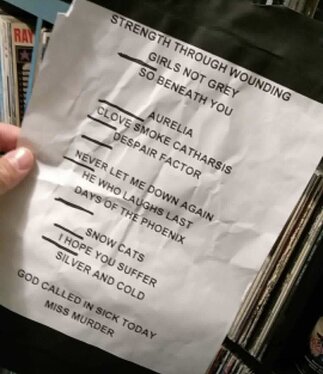 RAY
STRENGTH THROUGH WOUNDING
GIRLS NOT GREY
SO BENEATH YOU
AURELIA
CLOVE SMOKE CATHARSIS
DESPAIR FACTOR
NEVER LET ME DOWN AGAIN
HE WHO LAUGHS LAST
DAYS OF THE PHOENIX
SNOW CATS
I HOPE YOU SUFFER
SILVER AND COLD
GOD CALLED IN SICK TODAY
MISS MURDER